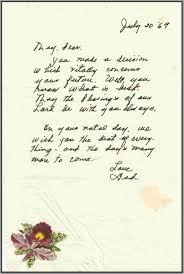 July 20 '69
May, dear.
You made a decision
which vitally concerns
your future. Well, you
know what is best.
May the blessings of our
Lord be with you always.
On your natal day, we
wish you the best of every
thing. and the days many
more to come.
Love
Dad